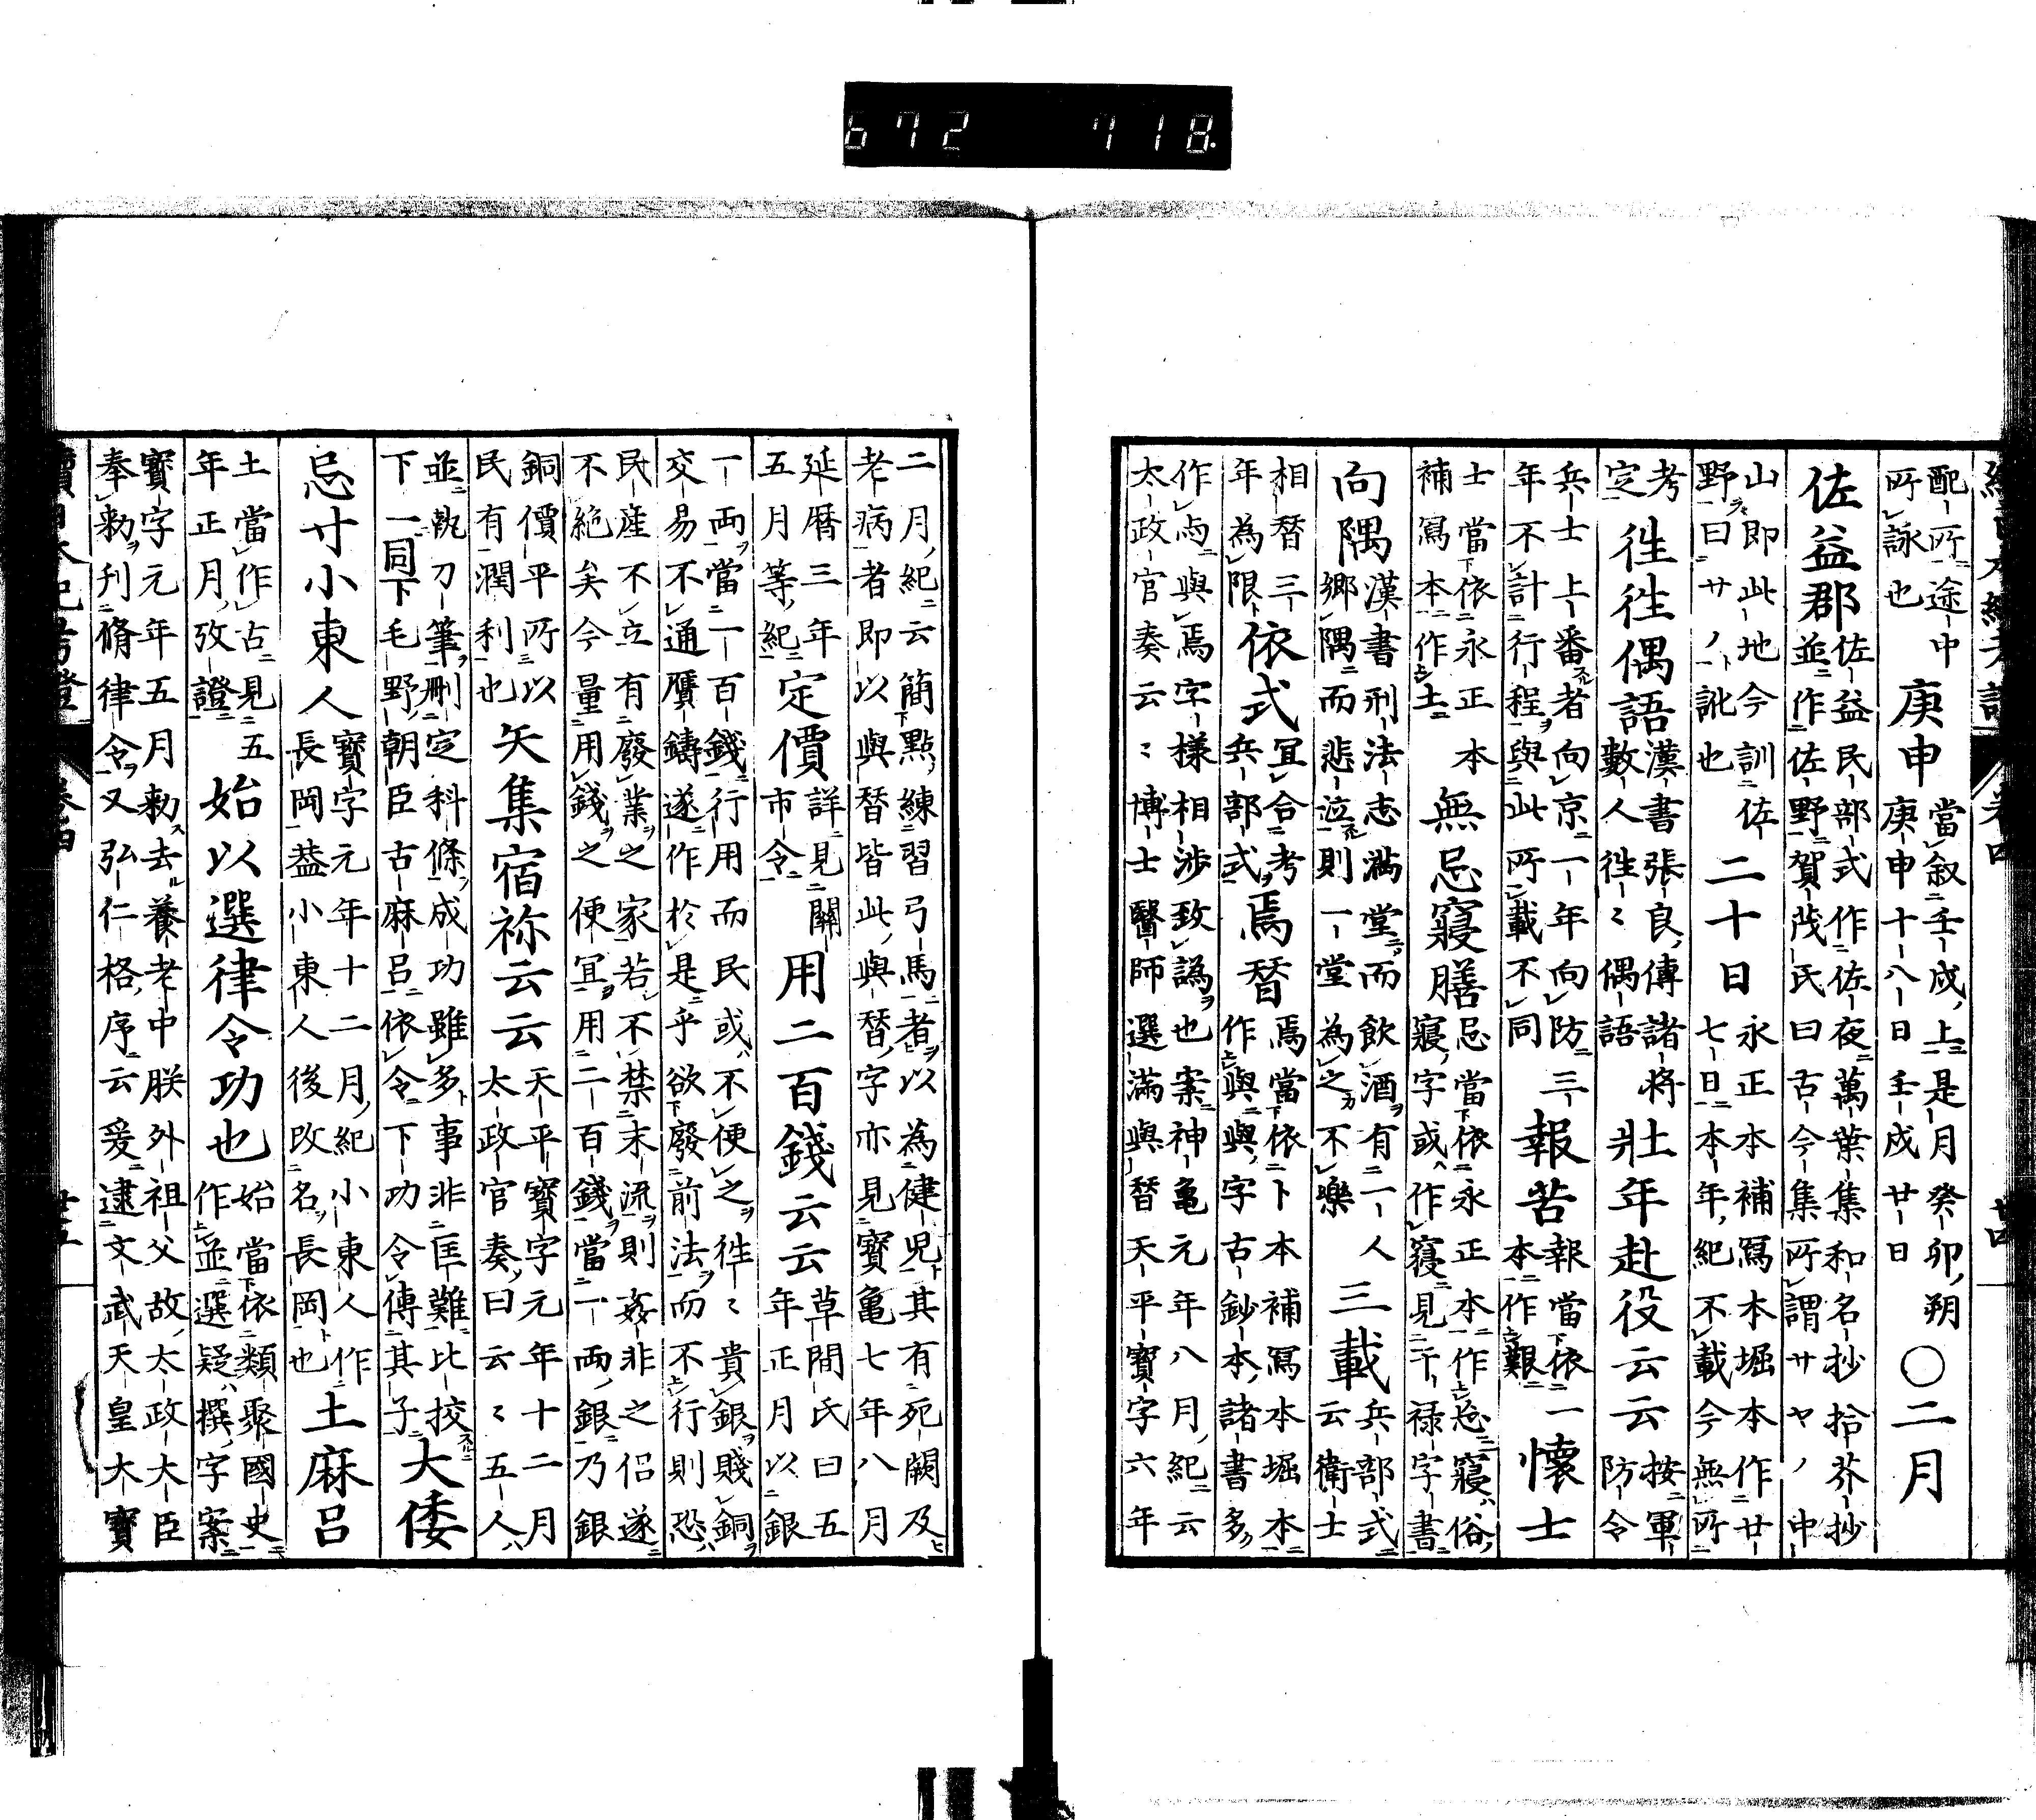 續日本紀考證 卷四 廿四
配所途中所詠也 庚申 當叙壬戌上是月癸卯朔庚申十八日壬戌廿日 〇二月
佐益郡 佐益民部式作佐夜萬葉集和名抄拾芥抄並作佐野賀茂氏曰古今集所謂サヤノ中
山即此地今訓佐野曰サノ訛也 二十日 永正本補寫本堀本作廿七日本年紀不載今無所
考定 徃徃偶語 漢書張良傳諸将數人徃〻偶語 壯年赴役云云 按軍防令
兵士上番者向京一年向防三年不計行程與此所載不同 報苦 報當依一本作艱 懐士
士當依永正本補寫本作土 無忌寢膳 忌當依永正本作忘寢俗寢字或作寑見干禄字書
向隅 漢書刑法志滿堂而飲酒有一人鄉隅而悲泣則一堂為之不樂 三載 兵部式云衛士
相替三年為限 依式 宜合考兵部式 焉替 焉當依卜本補寫本堀本作與與字古鈔本諸書多
作与與焉字様相渉致譌也案神亀元年八月紀云太政官奏云〻博士醫師選滿與替天平寶字六年
二月紀云簡點練習弓馬者以為健児其有死闕及老病者即以與替皆此與替字亦見寶亀七年八月
延暦三年五月等紀 定價 詳見關市令 用二百錢云云 草間氏曰五年正月以銀
一両當一百錢行用而民或不便之徃〻貴銀賤銅交易不通贋鑄遂作於是乎欲廢前法而不行則恐
民産不立有廢業之家若不禁末流則姦非之侶遂不絶矣今量用錢之便宜用二百錢當一両銀乃銀
銅價平所以民有潤利也 矢集宿祢云云 天平寶字元年十二月太政官奏曰云〻五人
並執刀筆刪定科條成功雖多事非匡難比挍下一同下毛野朝臣古麻呂依令下功令傳其子 大倭
忌寸小東人 寶字元年十二月紀小東人作長岡葢小東人後改名長岡也 土麻呂
土當作古見五年正月攷證 始以選律令功也 始當依類聚國史作並選疑撰字案
寶字元年五月勅去養老中朕外祖父故太政大臣奉勅刋脩律令又弘仁格序云爰逮文武天皇大寶
續日本紀考證 卷四 廿五